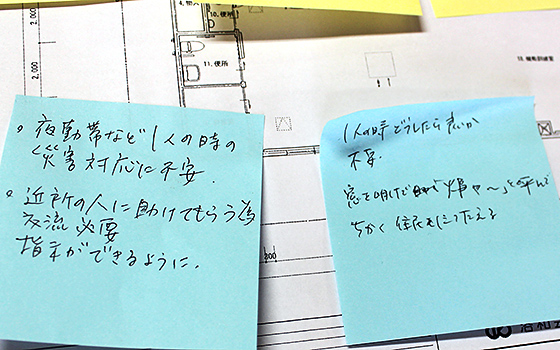 2,000
2,000
10. 便所
11. 便所
・夜勤帯など1人の時の
災害対応に不安.
・近所の人に助けてもらう為
交流必要
指示ができるように.
1人の時どうしたら良いか
不安.
窓を開けて
ちかく住民に
300